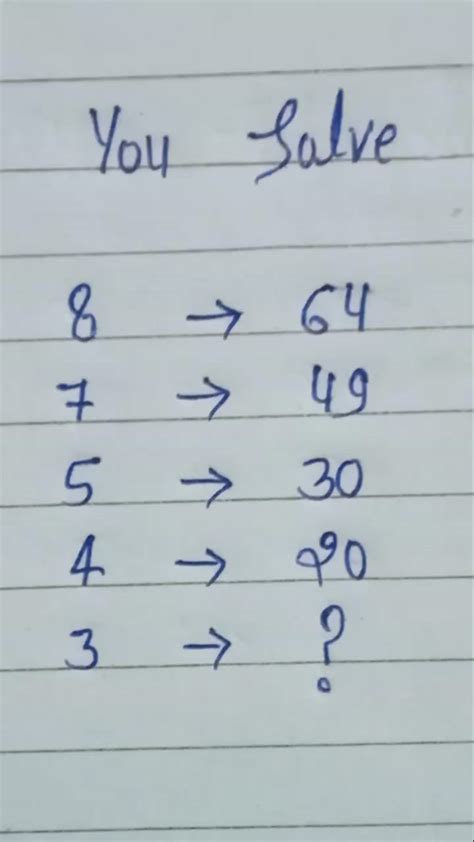 You Solve
8 → 64
7 → 49
5 → 30
4 → 20
3 → ?